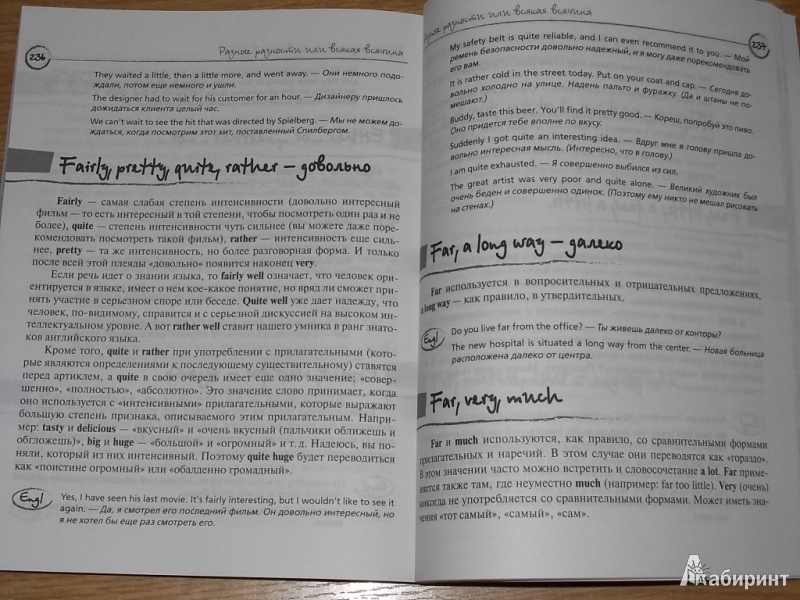 236
Разные разности или всякая всячина
They waited a little, then a little more, and went away. — Они немного подо-
ждали, потом еще немного и ушли.
The designer had to wait for his customer for an hour. — Дизайнеру пришлось
дожидаться клиента целый час.
We can't wait to see the hit that was directed by Spielberg. — Мы не можем до-
ждаться, когда посмотрим этот хит, поставленный Спилбергом.
Fairly, pretty, quite, rather — довольно
Fairly — самая слабая степень интенсивности (довольно интересный
фильм — то есть интересный в той степени, чтобы посмотреть один раз и не
более), quite — степень интенсивности чуть сильнее (вы можете даже поре-
комендовать посмотреть такой фильм), rather — интенсивность еще силь-
нее, pretty — та же интенсивность, но более разговорная форма. И только
после всей этой плеяды «довольно» появится наконец very.
Если речь идет о знании языка, то fairly well означает, что человек ори-
ентируется в языке, имеет о нем кое-какое понятие, но вряд ли сможет при-
нять участие в серьезном споре или беседе. Quite well уже дает надежду, что
человек, по-видимому, справится и с серьезной дискуссией на высоком ин-
теллектуальном уровне. А вот rather well ставит нашего умника в ранг знато-
ков английского языка.
Кроме того, quite и rather при употреблении с прилагательными (кото-
рые являются определениями к последующему существительному) ставятся
перед артиклем, а quite в свою очередь имеет еще одно значение: «совер-
шенно», «полностью», «абсолютно». Это значение слово принимает, когда
оно используется с «интенсивными» прилагательными, которые выражают
большую степень признака, описываемого этим прилагательным. Напри-
мер: tasty и delicious — «вкусный» и «очень вкусный (пальчики оближешь и
обгложешь)», big и huge — «большой» и «огромный» и т. д. Надеюсь, вы по-
няли, который из них интенсивный. Поэтому quite huge будет переводиться
как "поистине огромный" или «обалденно громадный».
Engl
Yes, I have seen his last movie. It's fairly interesting, but I wouldn't like to see it
again. — Да, я смотрел его последний фильм. Он довольно интересный, но
я не хотел бы еще раз смотреть его.
разности или всякая всячина
237
My safety belt is quite reliable, and I can even recommend it to you. — Мой
ремень безопасности довольно надежный, и я могу даже порекомендовать
его вам.
It is rather cold in the street today. Put on your coat and cap. — Сегодня до-
вольно холодно на улице. Надень пальто и фуражку. (Да и штаны не по-
мешают.)
Buddy, taste this beer. You'll find it pretty good. — Кореш, попробуй это пиво.
Оно придется тебе вполне по вкусу.
Suddenly I got quite an interesting idea. — Вдруг мне в голову пришла до-
вольно интересная мысль. (Интересно, что в голову.)
I am quite exhausted. — Я совершенно выбился из сил.
The great artist was very poor and quite alone. — Великий художник был
очень беден и совершенно одинок. (Поэтому ему никто не мешал рисовать
на стенах.)
Far, a long way — далеко
Far используется в вопросительных и отрицательных предложениях,
a long way — как правило, в утвердительных.
Engl
Do you live far from the office? — Ты живешь далеко от конторы?
The new hospital is situated a long way from the center. — Новая больница
расположена далеко от центра.
Far, very, much
Far и much используются, как правило, со сравнительными формами
прилагательных и наречий. В этом случае они переводятся как «гораздо».
В этом значении часто можно встретить и словосочетание a lot. Far приме-
няется также там, где неуместно much (например: far too little). Very (очень)
никогда не употребляется со сравнительными формами. Может иметь зна-
чения «тот самый», «самый», «сам».
Лабиринт